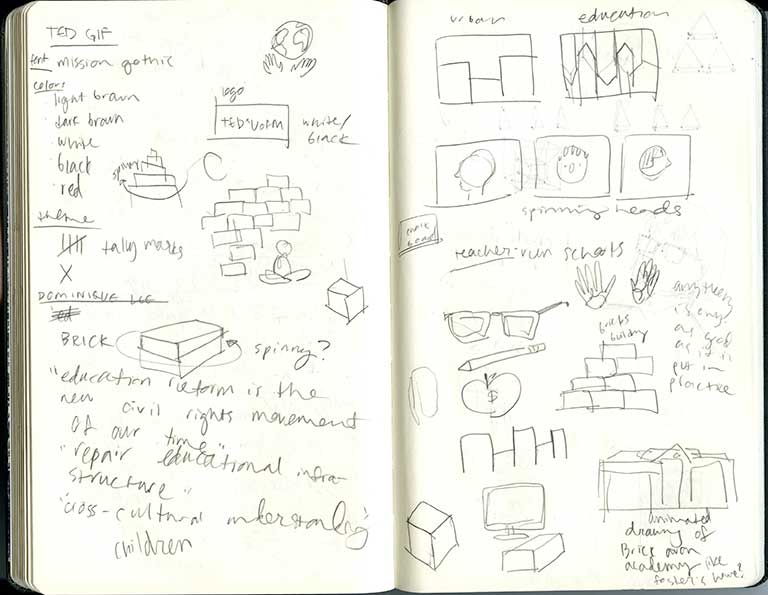 TED GIF
font mission gothic
colors
light brown
dark brown
white
black
red
logo
white/
black
spinny
theme
tally marks
X
BRICK
spinny?
"education reform is the
new civil rights movement
of our time"
"repair educational infra-
structure"
"cross-cultural understanding"
children
urban
education
spinning heads
teacher-run schools
bricks
building
anything
is only
as good
as it is
put in
practice
$
animated
drawing of
Brick avon
academy like
foster's home?